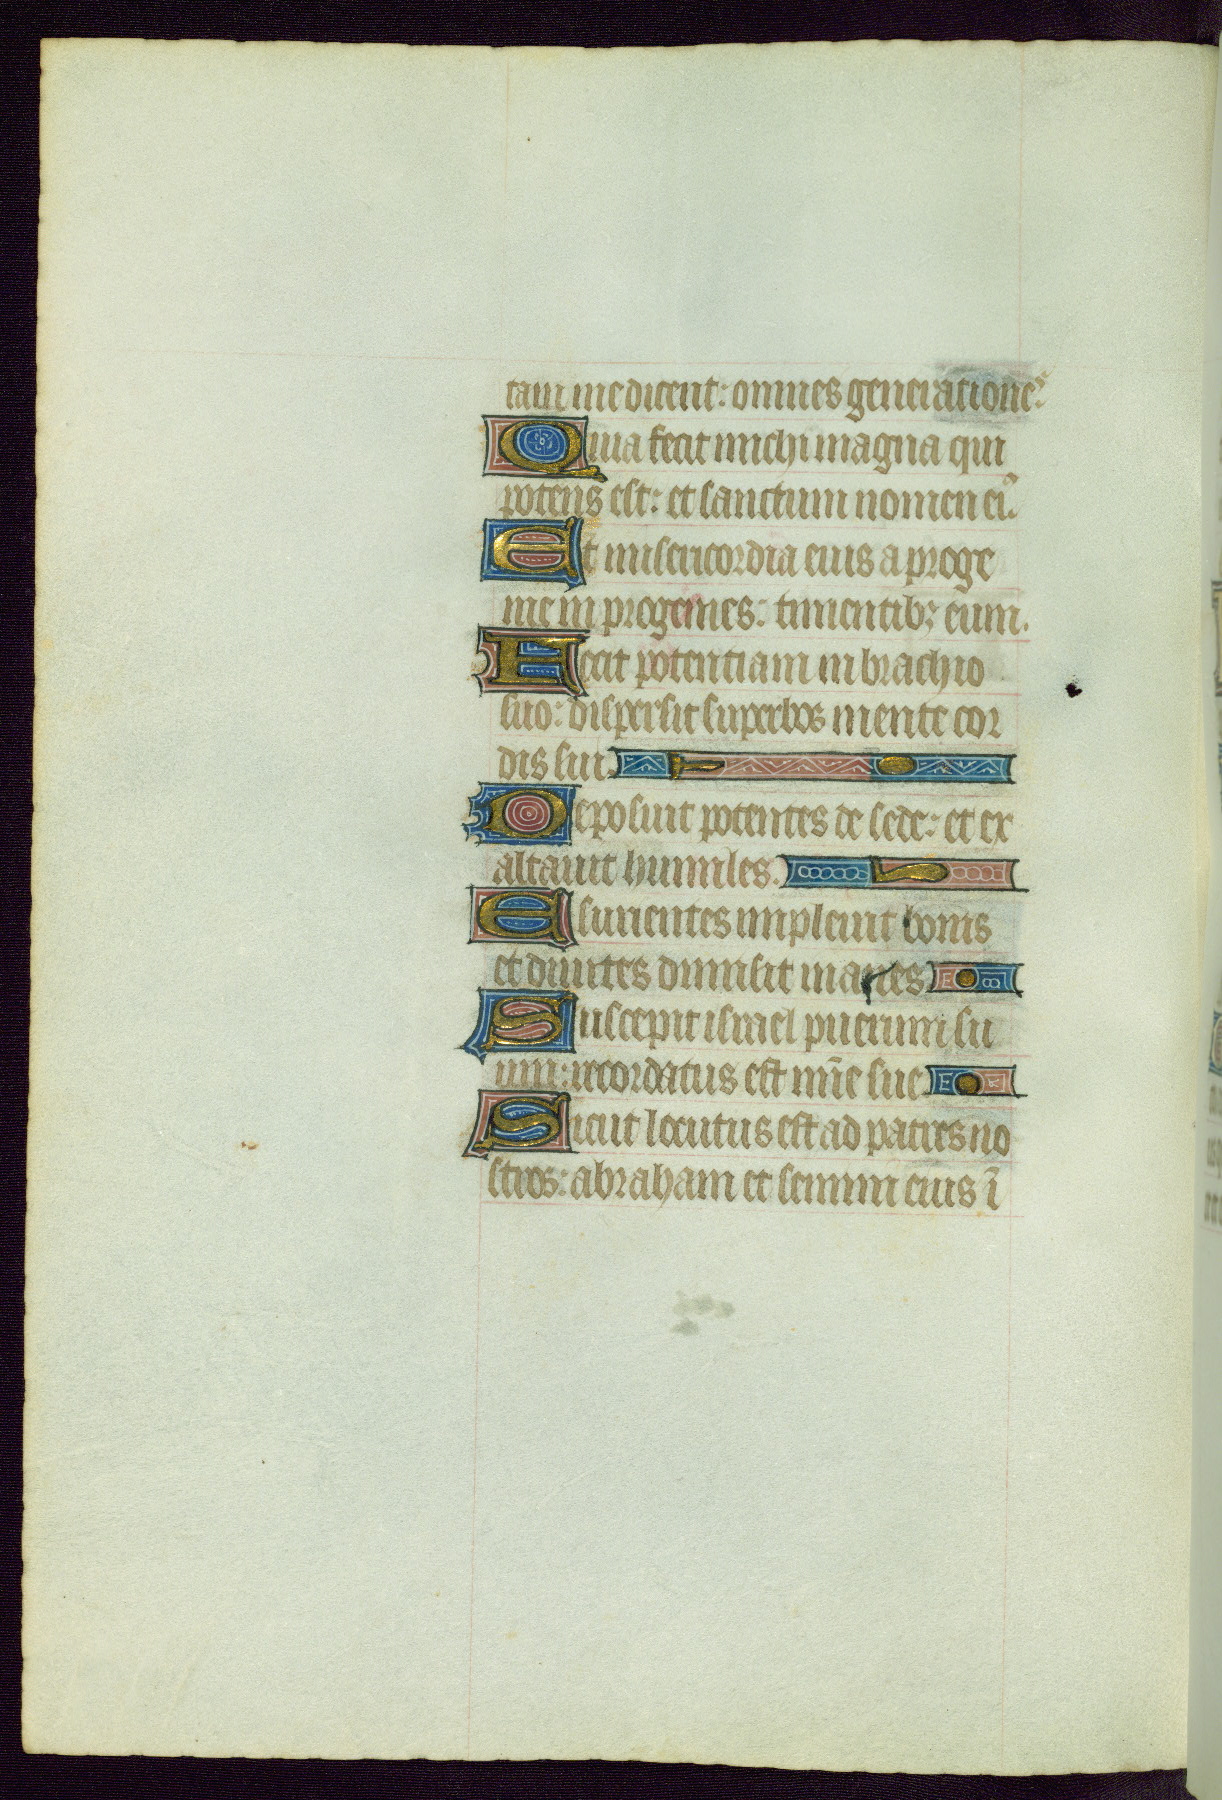 tam me dicent: omnes generatione&s
Quia fecit michi magna qui
potens est: et sanctum nomen eiꝰ.
Et misericordia eius a proge
nie in progenies: timentibꝫ eum.
Fecit potentiam in brachio
suo: dispersit superbos mente cor
dis sui.
Deposuit potentes de sede: et ex
altauit humiles.
Esurientes impleuit bonis
et diuites dimisit inanes.
Suscepit israel puerum su
um: recordatus est mīe sue.
Sicut locutus est ad patres no
stros: abraham et semini eius ī